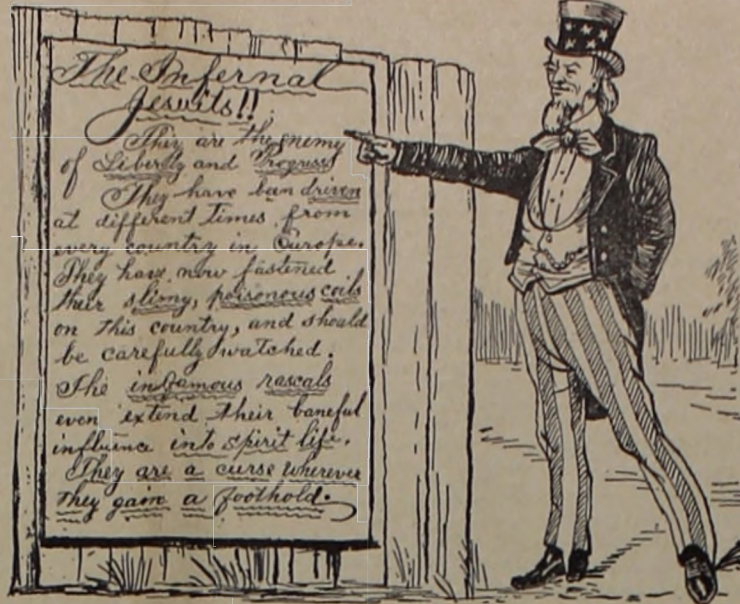 The Infernal
Jesuits!!
They are the enemy
of Liberty and Progress
They have been driven
at different times from
every country in Europe.
They have now fastened
their slimy, poisonous coils
on this country, and should
be carefully watched.
The infamous rascals
even extend their baneful
influence into spirit life.
They are a curse wherever
they gain a foothold.